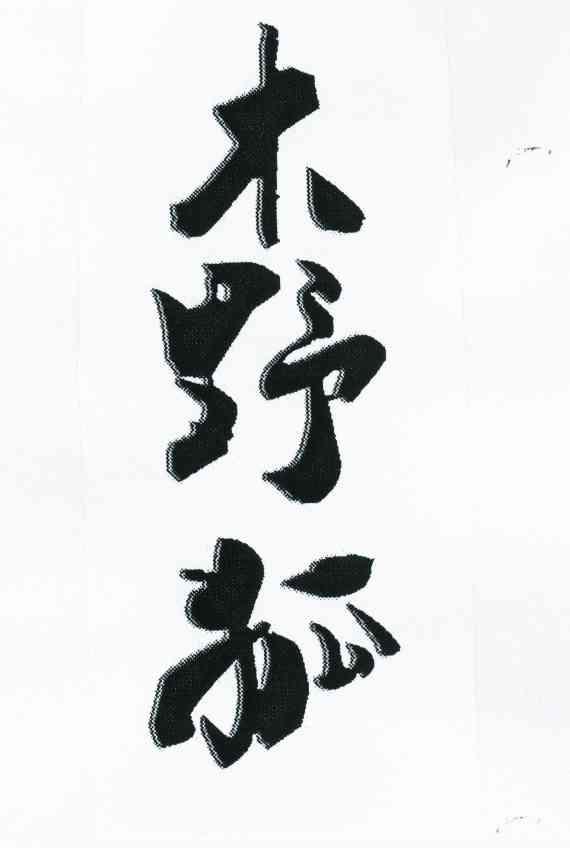 木野狐